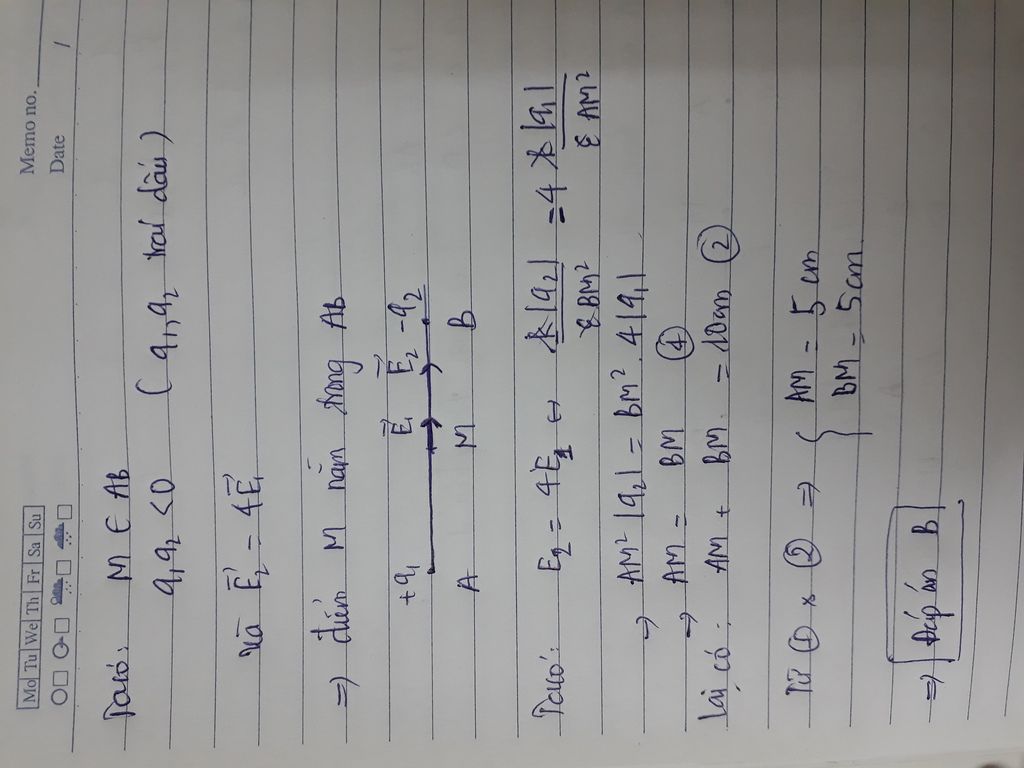 Memo no.
Mo Tu We Th Fr Sa Su
Date /
Ta có: M ∈ AB
q₁q₂ <0 (q₁, q₂ trái dấu)
Và E⃗₂ = 4E⃗₁
=> điểm M nằm trong AB
+q₁ E⃗₁ E⃗₂ -q₂
A M B
Ta có: E₂ = 4E₁ ⇔ k|q₂| / εBM² = 4 k|q₁| / εAM²
→ AM²|q₂| = BM². 4|q₁|
→ AM = BM ①
Lại có: AM + BM = 10cm ②
Từ ① x ② => { AM = 5cm
BM = 5cm
=> Đáp án B